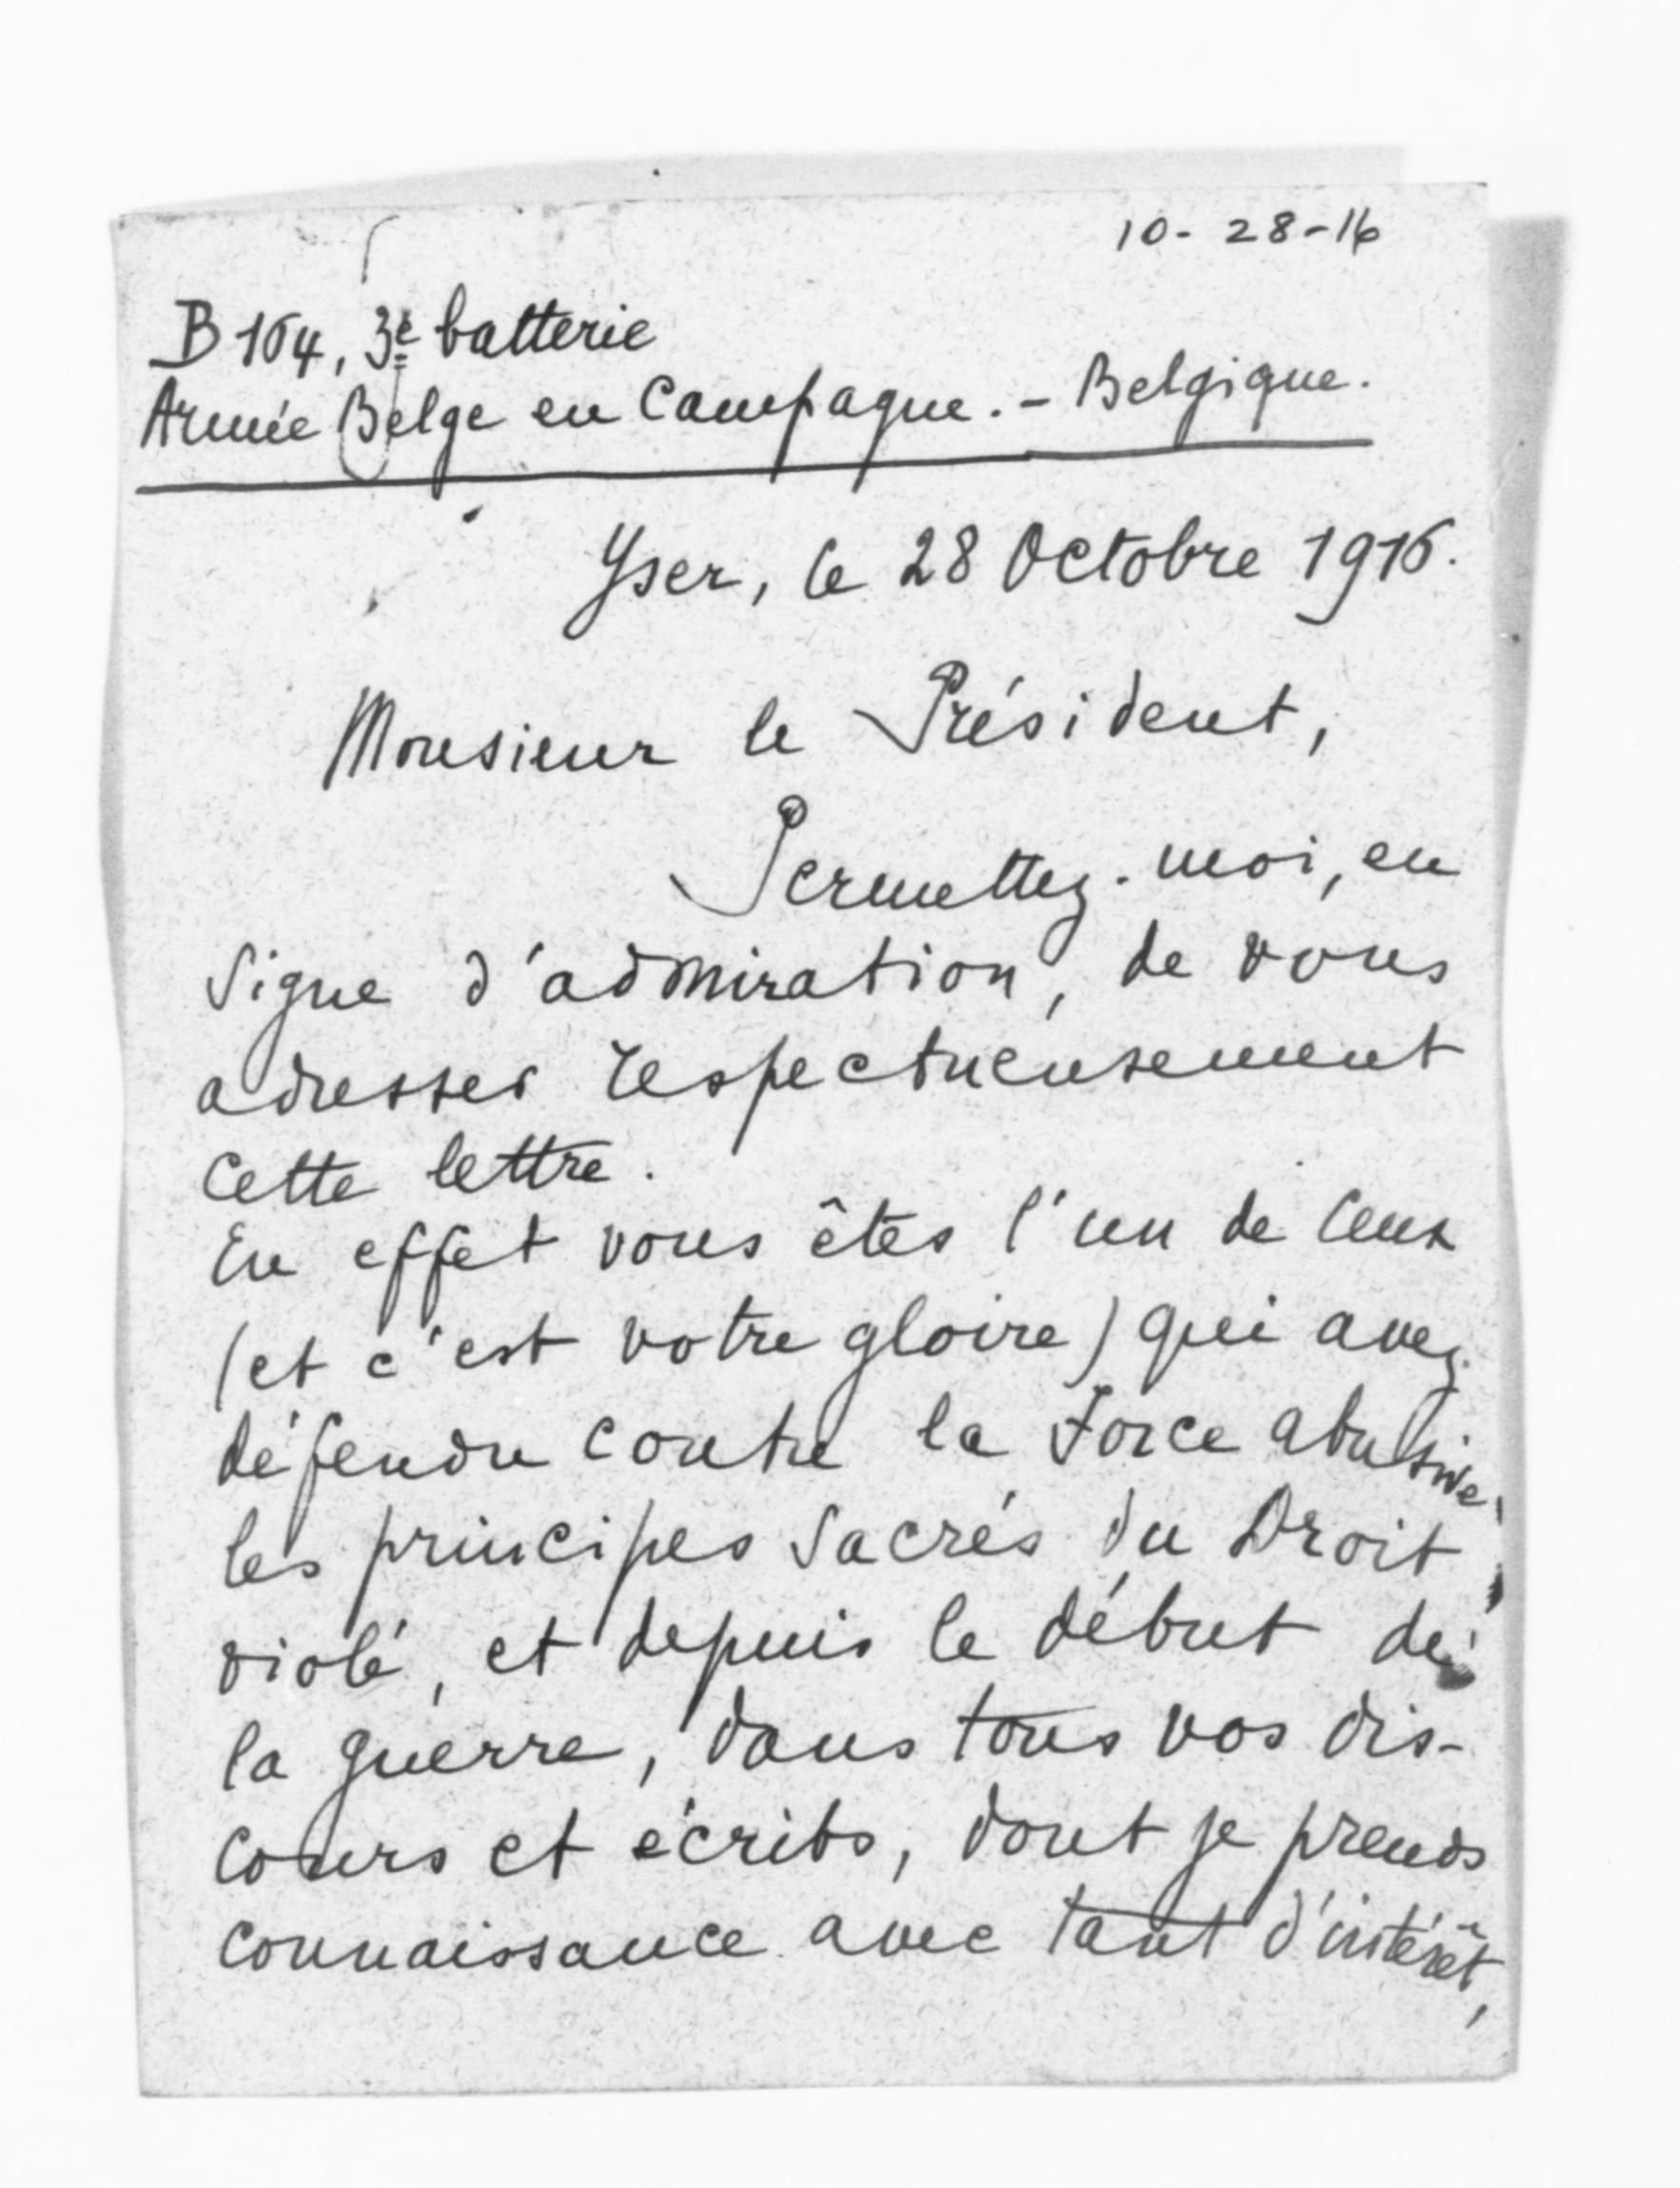 10-28-16
B 164, 3e batterie
Armée Belge en Campagne. - Belgique.
Yser, le 28 Octobre 1916.
Monsieur le Président,
Permettez-moi, en
signe d'admiration, de vous
adresser respectueusement
cette lettre.
En effet vous êtes l'un de ceux
(et c'est votre gloire) qui avez
défendu contre la Force abusive,
les principes sacrés du Droit
violé, et depuis le début de
la guerre, dans tous vos dis-
cours et écrits, dont je prends
connaissance avec tant d'intérêt,